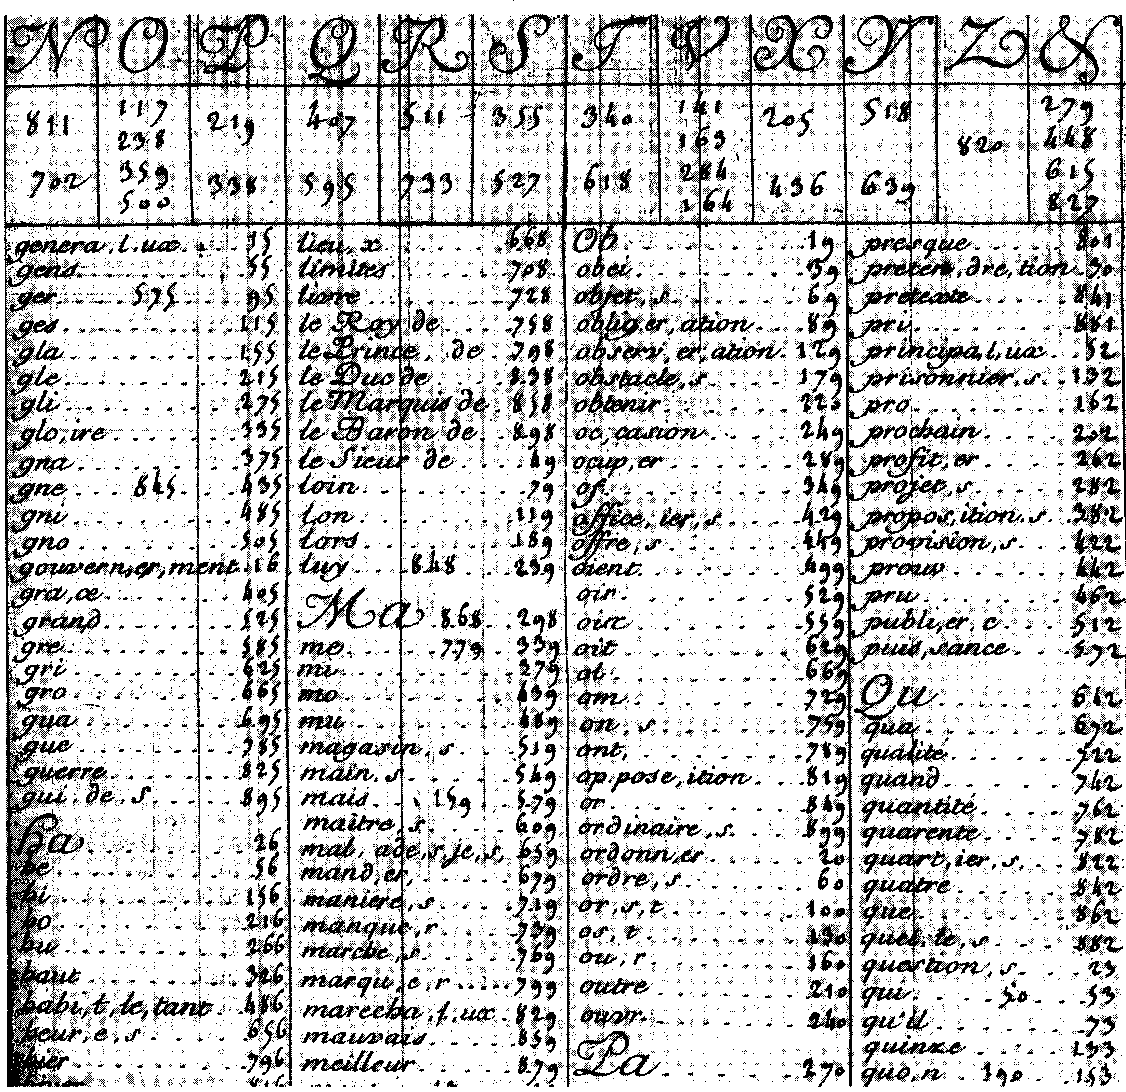 N O P Q R S T V X Y Z &
811 117 219 407 511 355 340 141 205 518 820 279
238 163 448
702 359 338 595 733 527 618 284 436 639 615
500 164 827
genera, l. ux 15
gens 55
ger 575 95
ges 115
gla 155
gle 215
gli 275
glo, ire 335
gna 375
gne 845 435
gni 485
gno 505
gouvern, er, ment 16
gra, ce 405
grand 525
gre 585
gri 625
gro 665
gua 695
gue 785
guerre 825
gui. de. s 895
Ha 26
he 56
hi 156
ho 216
hu 266
haut 326
habi, t, le, tant 486
heur, e, s 656
hier 796
lieu, x 668
limites 708
livre 728
le Roy de 758
le Prince, de 798
le Duc de 838
le Marquis de 858
le Baron de 898
le Sieur de 49
loin 79
lon 119
lors 189
luy 848 239
Ma 868 298
me 779 339
mi 379
mo 439
mu 489
magasin, s 519
main, s 549
mais 159 579
maitre, s 609
mal, ade, s, je, s, 659
mand, er, 679
maniere, s 719
manque, r 739
marche, s 769
marqu, e, r 799
marecha, l, ux 829
mauvais 859
meilleur 879
Ob 19
obei 39
objet, s 69
oblig, er, ation 89
observ, er, ation 129
obstacle, s 179
obtenir 220
oc, casion 249
ocup, er 289
of 349
office, ier, s 429
offre, s 449
oient 499
oir 529
oire 559
oit 629
ol 669
om 729
on, s 759
ont, 789
op, pose, ition 819
or 849
ordinaire, s 899
ordonn, er 20
ordre, s 60
or, s, t 100
os, t 130
ou, r 160
outre 210
ouvr 240
Pa 270
presque 801
preten, dre, tion 30
pretexte 841
pri 881
principa, l, ux 52
prisonnier, s 132
pro 162
prochain 202
profit, er 262
projet, s 282
propos, ition, s 382
provision, s 422
prouv 442
pru 462
publi, er, c 512
puis, sance 572
Qu 612
qua 692
qualité 722
quand 742
quantité 762
quarente 782
quart, ier, s 822
quatre 842
que 862
quel, le, s 882
question, s 23
qui 50 53
qu'il 73
quinze 133
quo, n 390 153